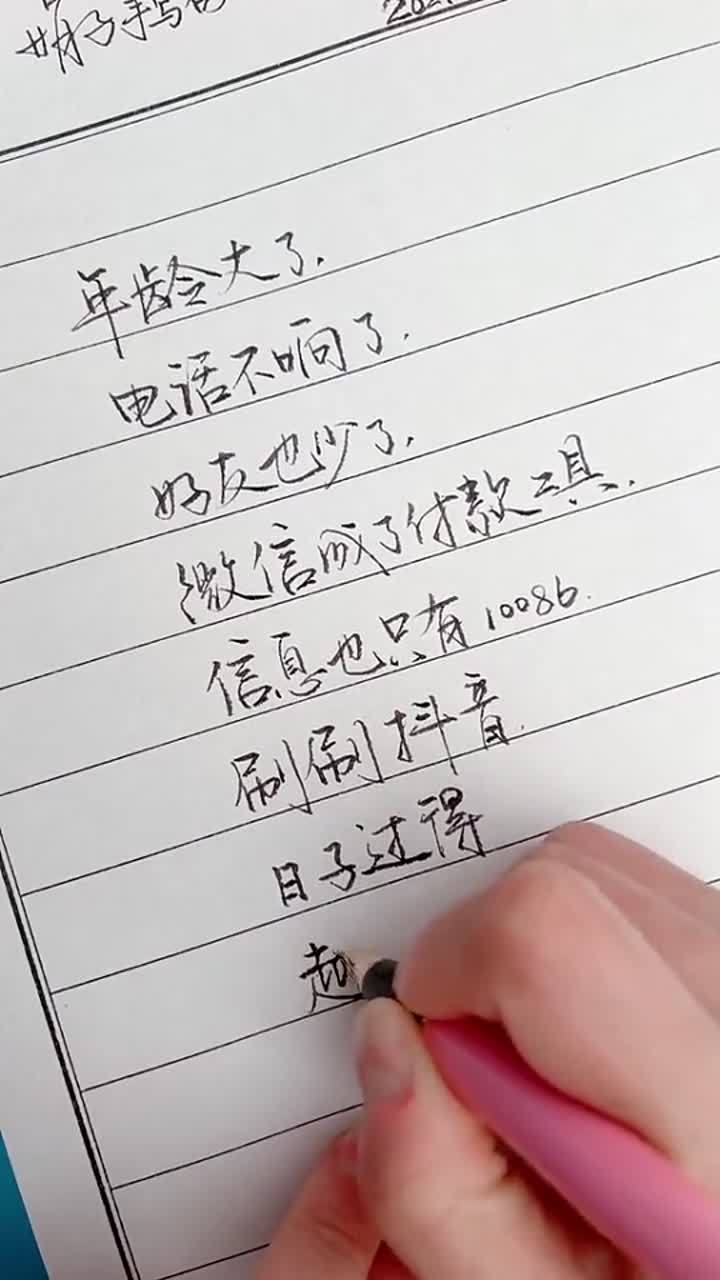 子手写
202
年龄大了.
电话不响了.
好友也少了.
微信成了付款工具.
信息也只有10086.
刷刷抖音.
日子过得
越